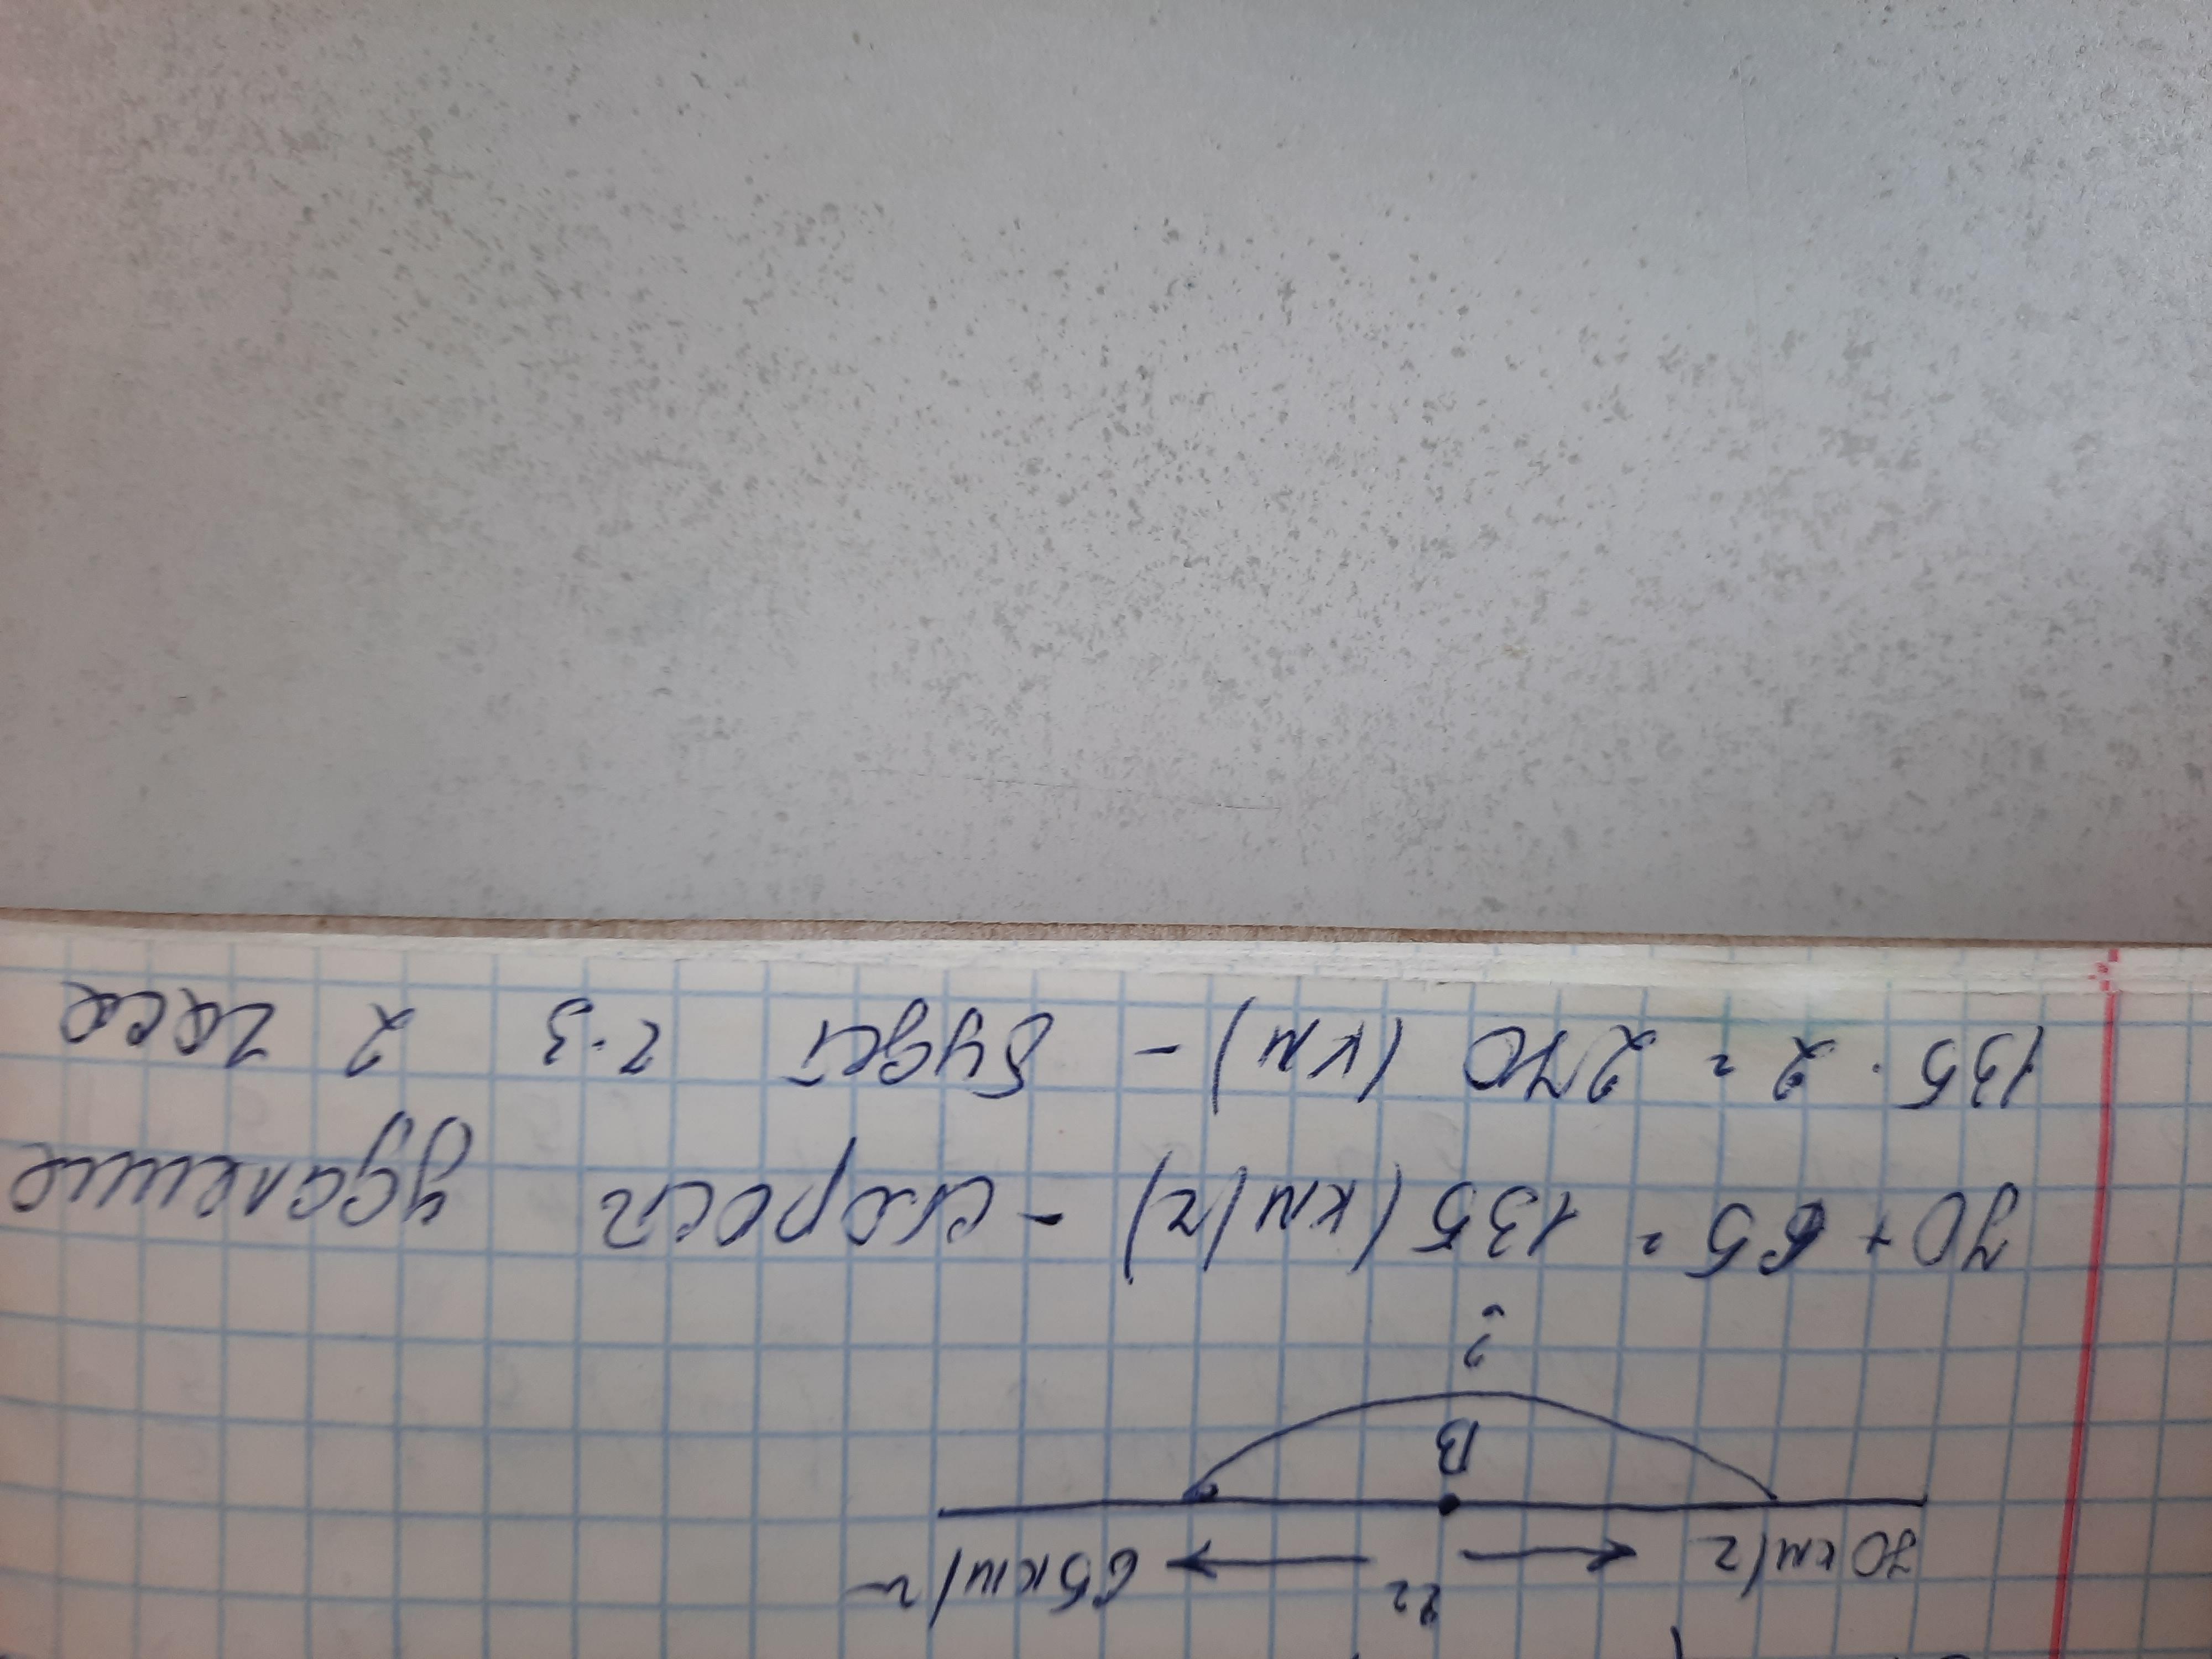 70 км/ч 2ч 65 км/ч
В
?
70 + 65 = 135 (км/ч) - скорость удаления
135 · 2 = 270 (км) - будет ч.з 2 часа